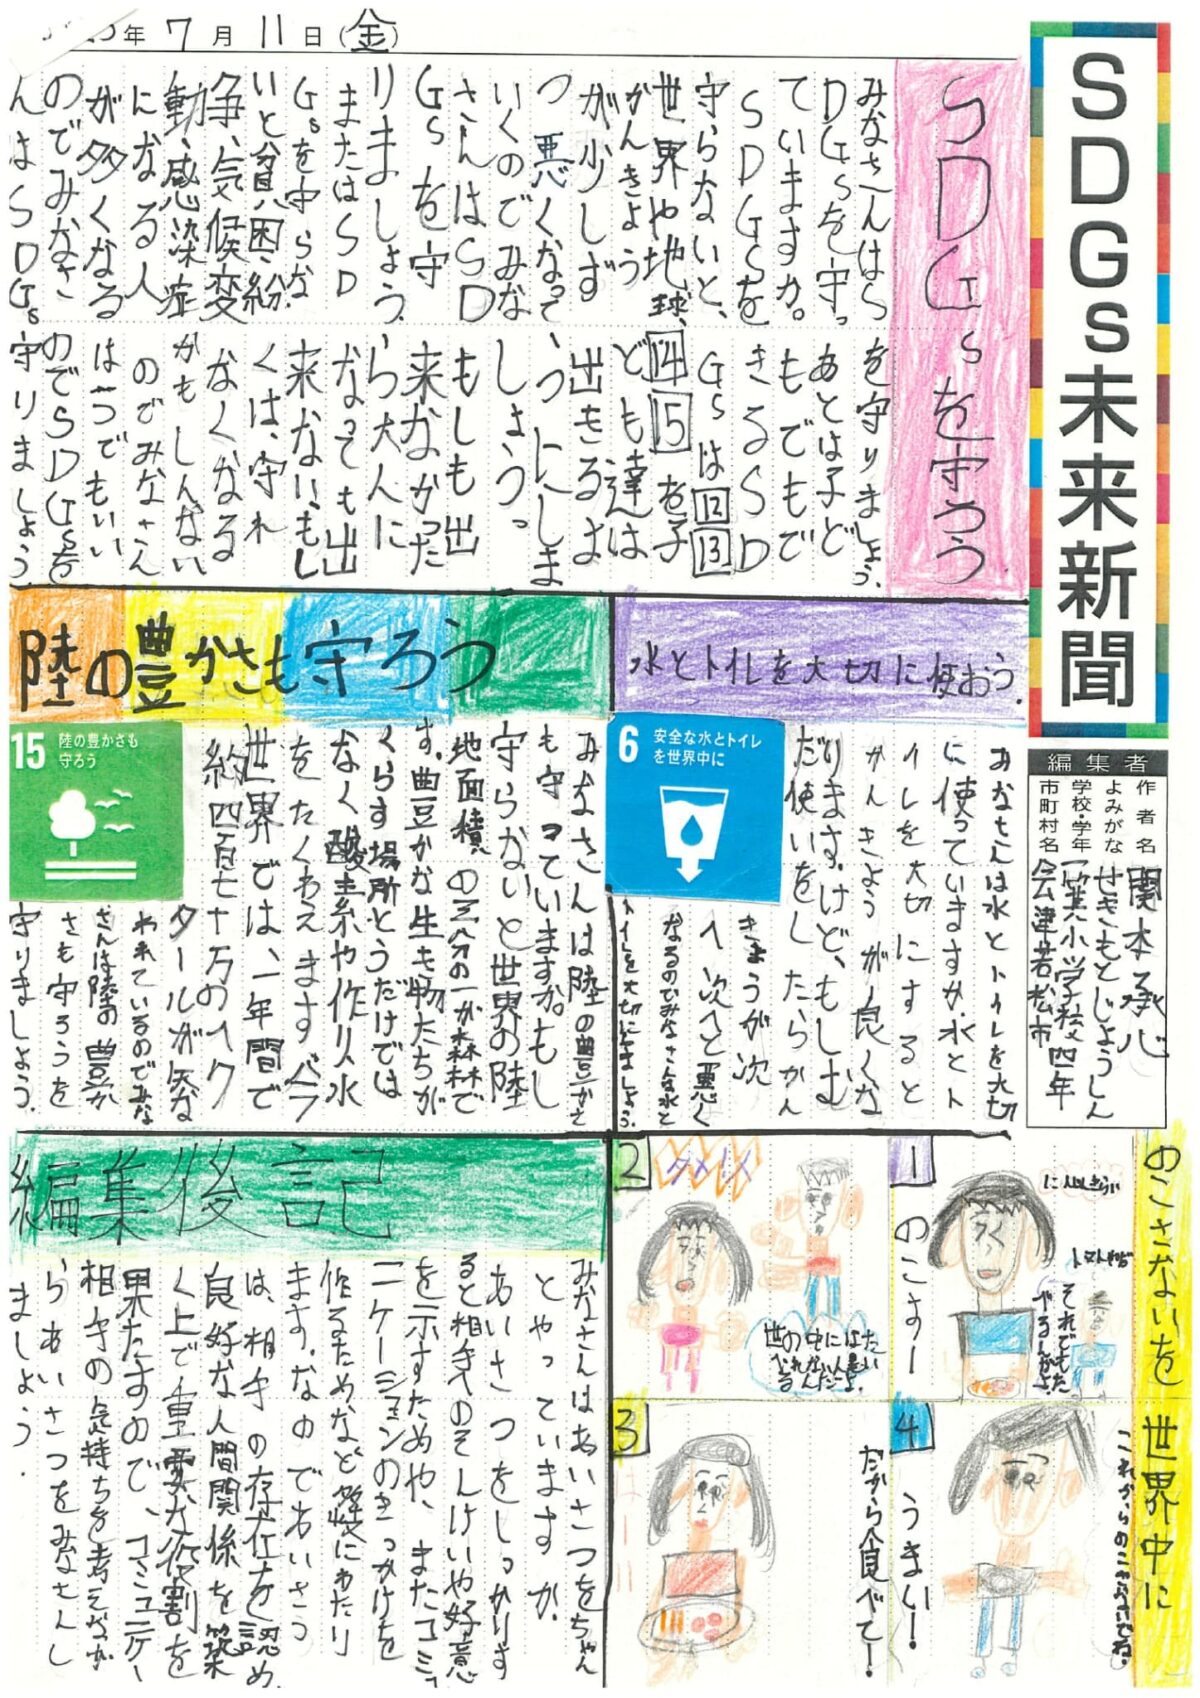 年7月11日(金)
SDGs未来新聞
編集者
作者名 関本承心
よみがな せきもとじょうしん
学校・学年 一箕小学校 四年
市町村名 会津若松市
SDGsを守ろう
みなさんはS
DGsを守っ
ていますか。
SDGsを
守らないと、
世界や地球、
かんきょう
が少しず
つ悪くなって
いくのでみな
さんはSD
Gsを守
りましょう。
またはSD
Gsを守らな
いと貧困・紛
争、気候変
動、感染症
になる人
が多くなる
のでみなさ
んはSDGs
を守りましょう。
あとは子ど
もでもで
きるSD
Gsは12 13
14 15を子
ども達は
出きるよ
うにしま
しょう。
もしも出
来なかった
ら大人に
なっても出
来ない、もし
くは、守れ
なくなる
かもしんない
のでみなさん
は一つでもいい
のでSDGsを
守りましょう。
水とトイレを大切に使おう。
6 安全な水とトイレを世界中に
みなさんは水とトイレを大切
に使っていますか。水とト
イレを大切にすると
かんきょうが良くな
ります。けど、もしむ
だ使いをしたらかん
きょうが次
へ次へと悪く
なるのでみなさんも水と
トイレを大切にしましょう。
陸の豊かさも守ろう
15 陸の豊かさも守ろう
みなさんは陸の豊かさ
も守っていますか。もし
守らないと世界の陸
地面積の三分の一が森林で
す。豊かな生き物たちが
くらす場所とうだけでは
なく酸素や作り、水
をたくわえます。
世界では、一年間で
約四百七十万のヘク
タールが失な
われているのでみな
さんは陸の豊か
さも守ろうを
守りましょう。
のこさないを世界中に
1
のこすー
にんじんきらい
それでもた
べるんだよ
2
ダメ!メ
世の中にはたい
べれない人
るんだよ。
3
だから食べてー!
4
うまい!
これからのこさないでね。
編集後記
みなさんはあいさつをちゃん
とやっていますか。
あいさつをしっかりす
ると相手のそんけいや好意
を示すためや、またコミュ
ニケーションのきっかけを
作るため、など多岐にわたり
ます。なのであいさつ
は、相手の存在を認め、
良好な人間関係を築
く上で重要な役割を
果たすので、コミュニケー
相手の気持ちを考えなが
らあいさつをみなさんし
ましょう。